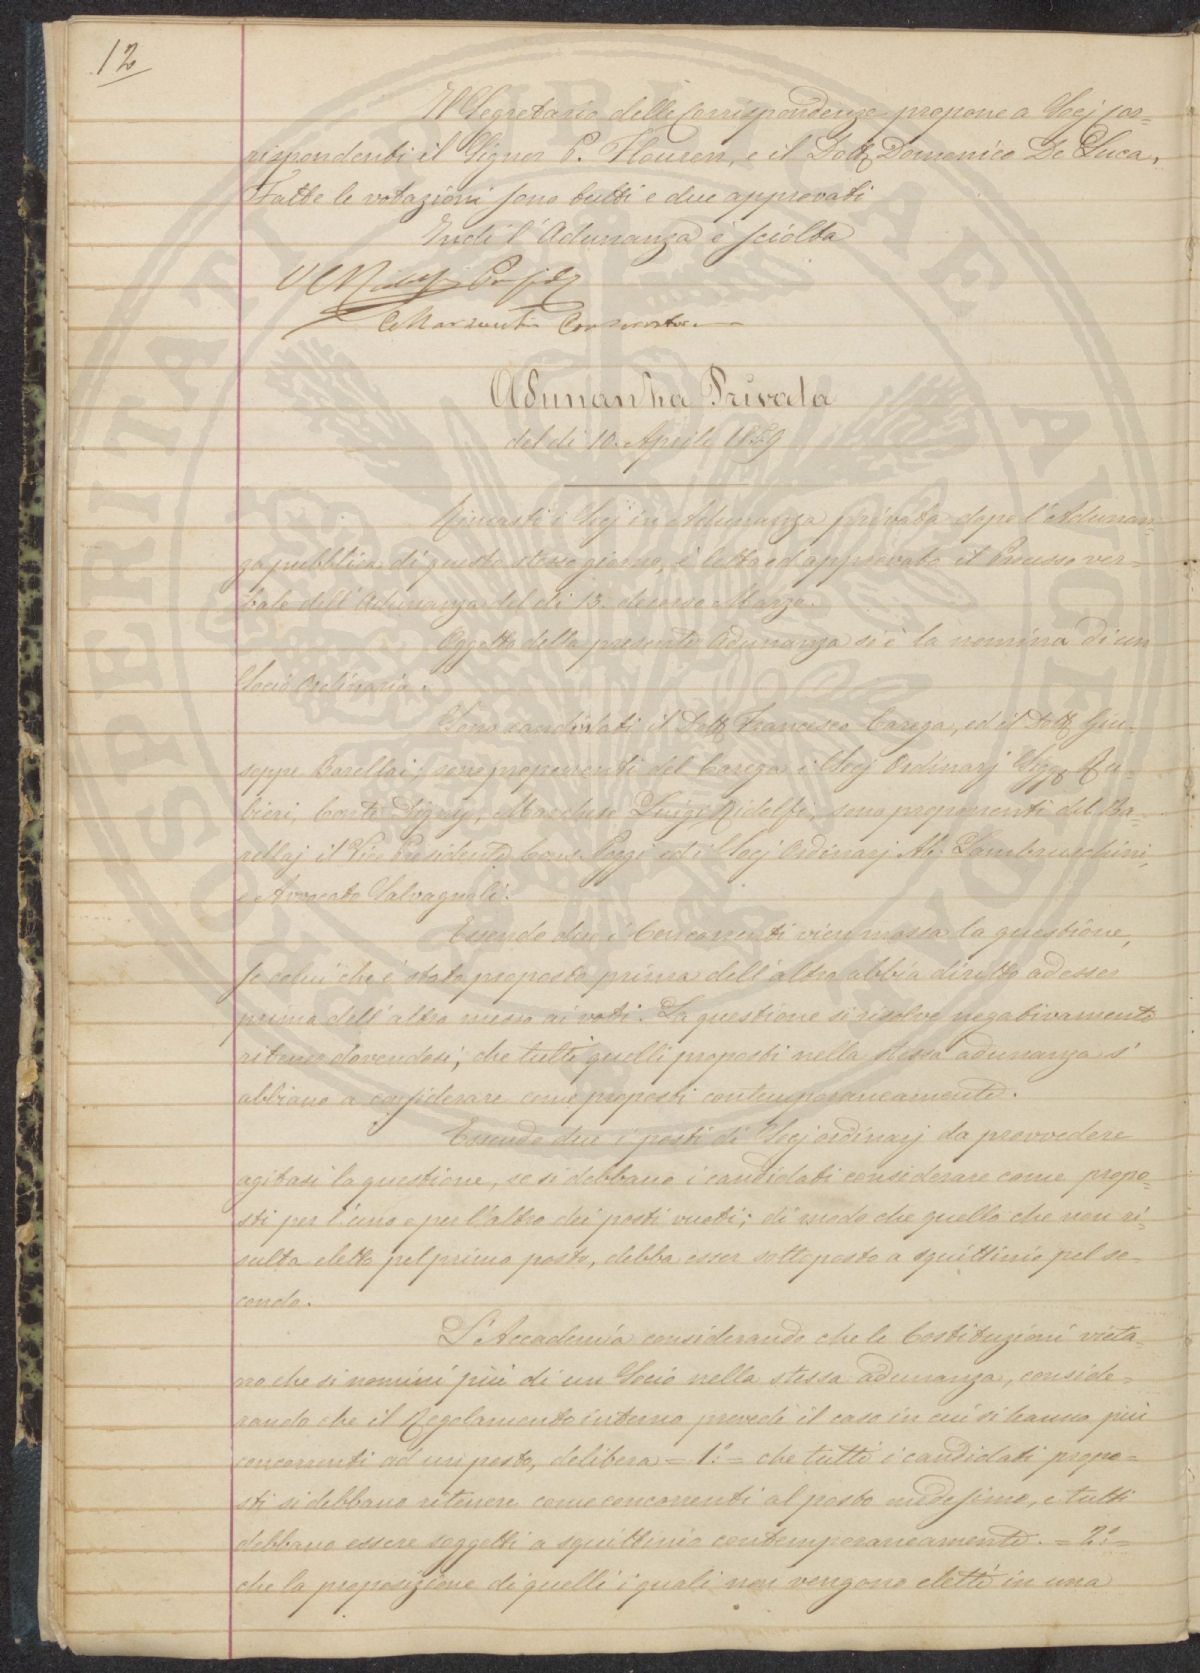 12
Il Segretario delle Corrispondenze propone a Socj cor=
rispondenti il Signor P. Flouren, e il Dott. Domenico De Luca.
Fatte le votazioni sono tutti e due approvati
Indi l'Adunanza è sciolta
Adunanza Privata
del dì 10. Aprile 1859
Rimasti i Socj in Adunanza privata dopo l'Adunan=
za pubblica di questo stesso giorno, è letto ed approvato il Processo ver=
bale dell'Adunanza del dì 13. decorso Marzo.
Oggetto della presente Adunanza si è la nomina di un
Socio Ordinario.
Sono candidati il Dott. Francesco Carega, ed il Dott. Giu=
seppe Barellai; sono proponenti del Carega i Socj Ordinarj Sigg. Ru=
bieri, Conte Digny, Marchese Luigi Ridolfi, sono proponenti del Ba=
rellaj il Vice Presidente Cons. Poggi ed i Socj Ordinarj Ab. Lambruschini,
e Avvocato Salvagnoli.
Essendo due i Concorrenti vien mossa la questione,
se colui che è stato proposto prima dell'altro abbia diritto ad esser
prima dell'altro messo ai voti. La questione si risolve negativamente
ritener dovendosi, che tutti quelli proposti nella stessa adunanza s'
abbiano a considerare come proposti contemporaneamente.
Essendo due i posti di Socj ordinarj da provvedere
agitasi la questione, se si debbano i candidati considerare come propo=
sti per l'uno e per l'altro dei posti vuoti; di modo che quello che non ri=
sulta eletto pel primo posto, debba esser sottoposto a squittinio pel se=
condo.
L'Accademia considerando che le Costituzioni vieta=
no che si nomini più di un Socio nella stessa adunanza, conside=
rando che il Regolamento interno prevede il caso in cui si hanno più
concorrenti ad un posto, delibera = 1.° = che tutti i candidati propo=
sti si debbano ritenere come concorrenti al posto medesimo, e tutti
debbano essere soggetti a squittinio contemporaneamente. = 2.° =
che la proposizione di quelli i quali non vengono eletti in una
PROSPERITATI PUBLICAE AUGENDAE